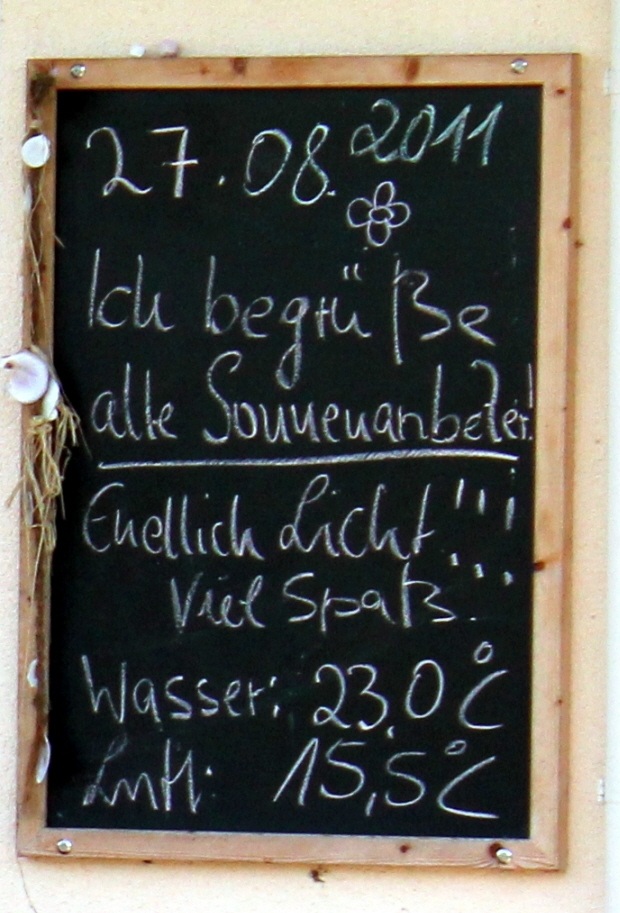 27.08.2011
Ich begrüße
alle Sonnenanbeter!
Endlich Licht!!!
Viel Spaß.
Wasser: 23,0°C
Luft: 15,5°C